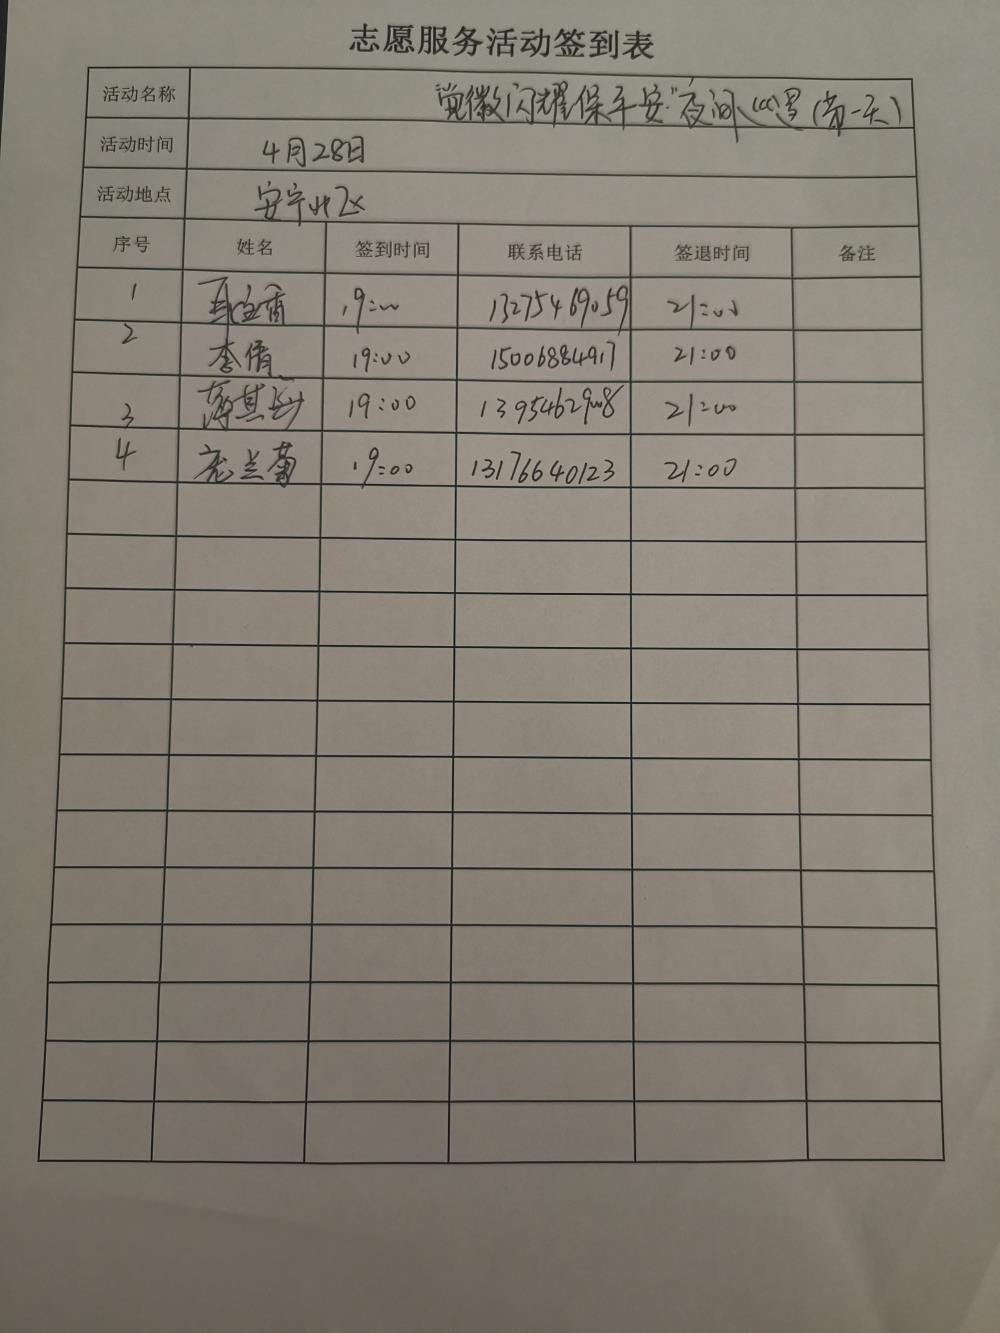 志愿服务活动签到表
活动名称 "党徽闪耀保平安"夜间巡逻(第一天)
活动时间 4月28日
活动地点 安宁北区
序号 姓名 签到时间 联系电话 签退时间 备注
1 19:00 13275469059 21:00
2 李倩 19:00 15006884917 21:00
3 19:00 13954629008 21:00
4 庞兰菊 19:00 13176640123 21:00